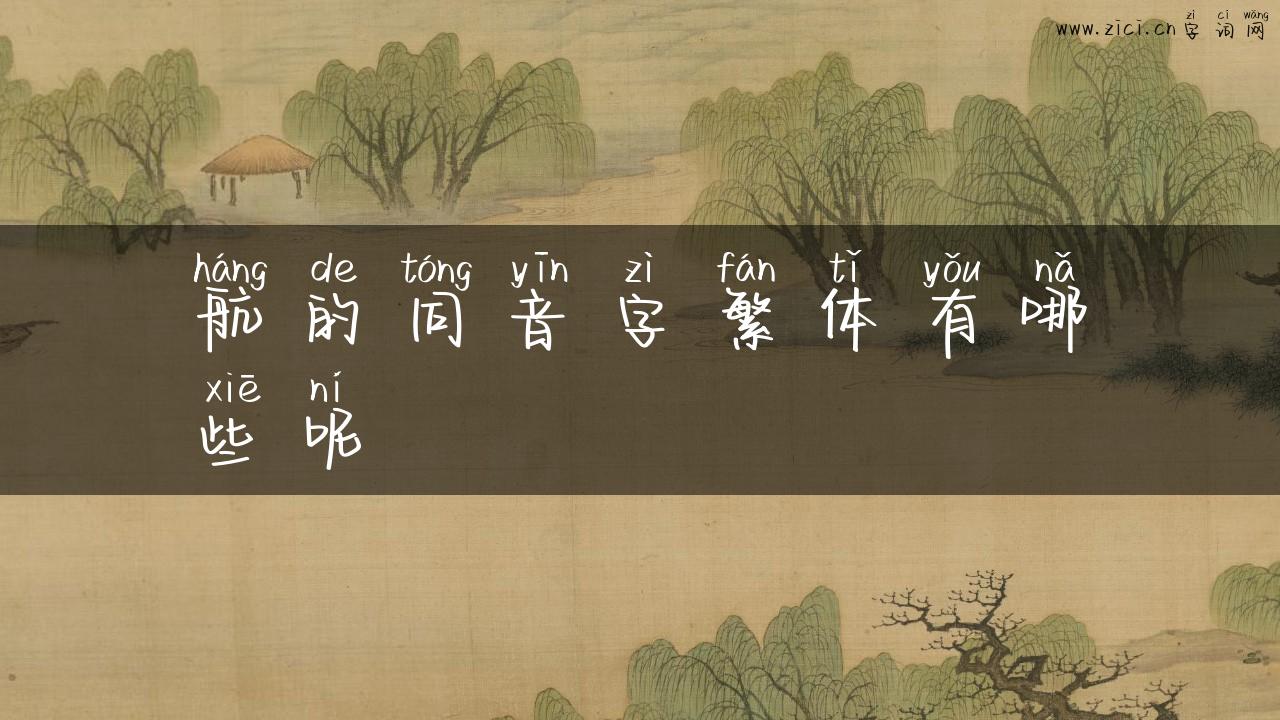 zì cí wǎng
www.zici.cn 字 词 网
háng de tóng yīn zì fán tǐ yǒu nǎ
航 的 同 音 字 繁 体 有 哪
xiē ní
些 呢